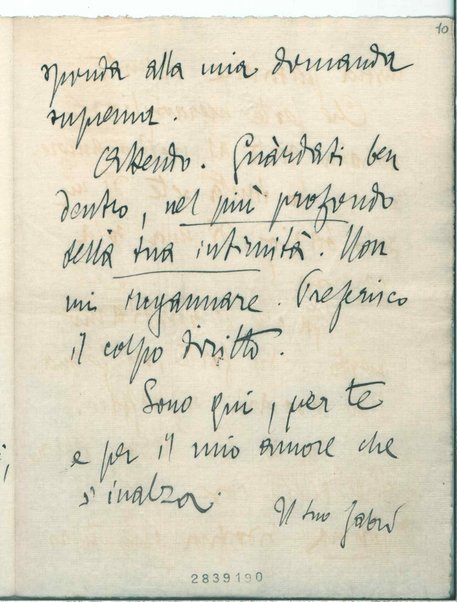 10
sponda alla mia domanda
suprema.
Attendo. Guàrdati ben
dentro, nel più profondo
della tua intimità. Non
mi ingannare. Preferisco
il colpo diritto.
Sono qui, per te
e per il mio amore che
s'inalza.
Il tuo Gabri
2839190